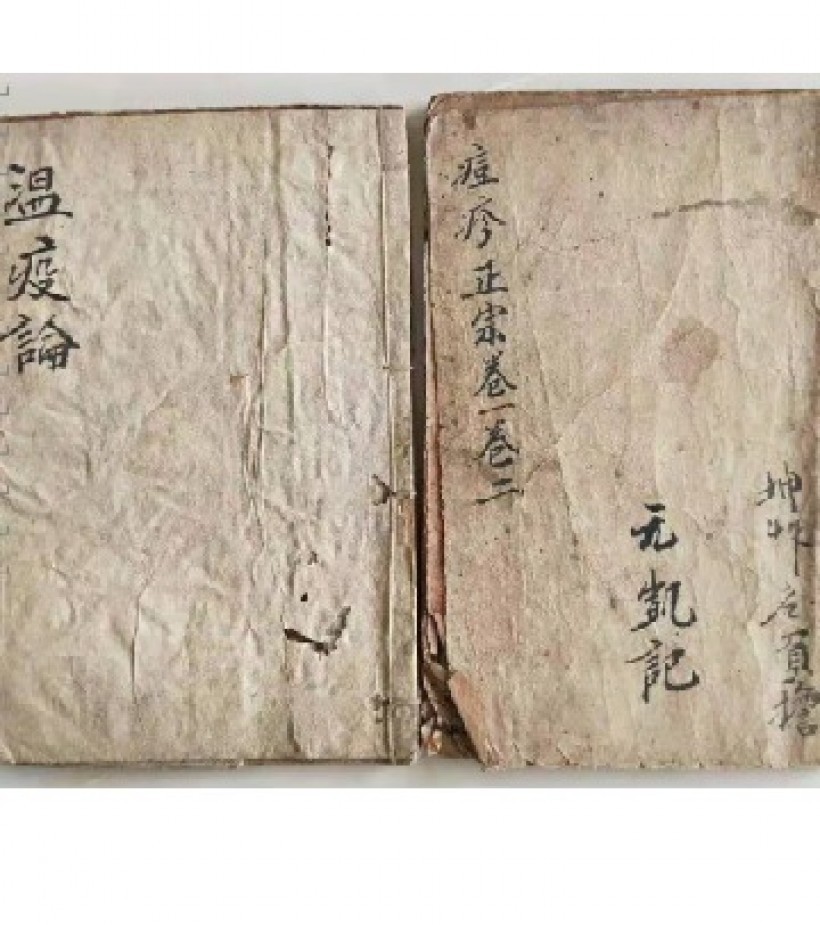 温疫論
痘疹正宗卷一卷二
元凱記